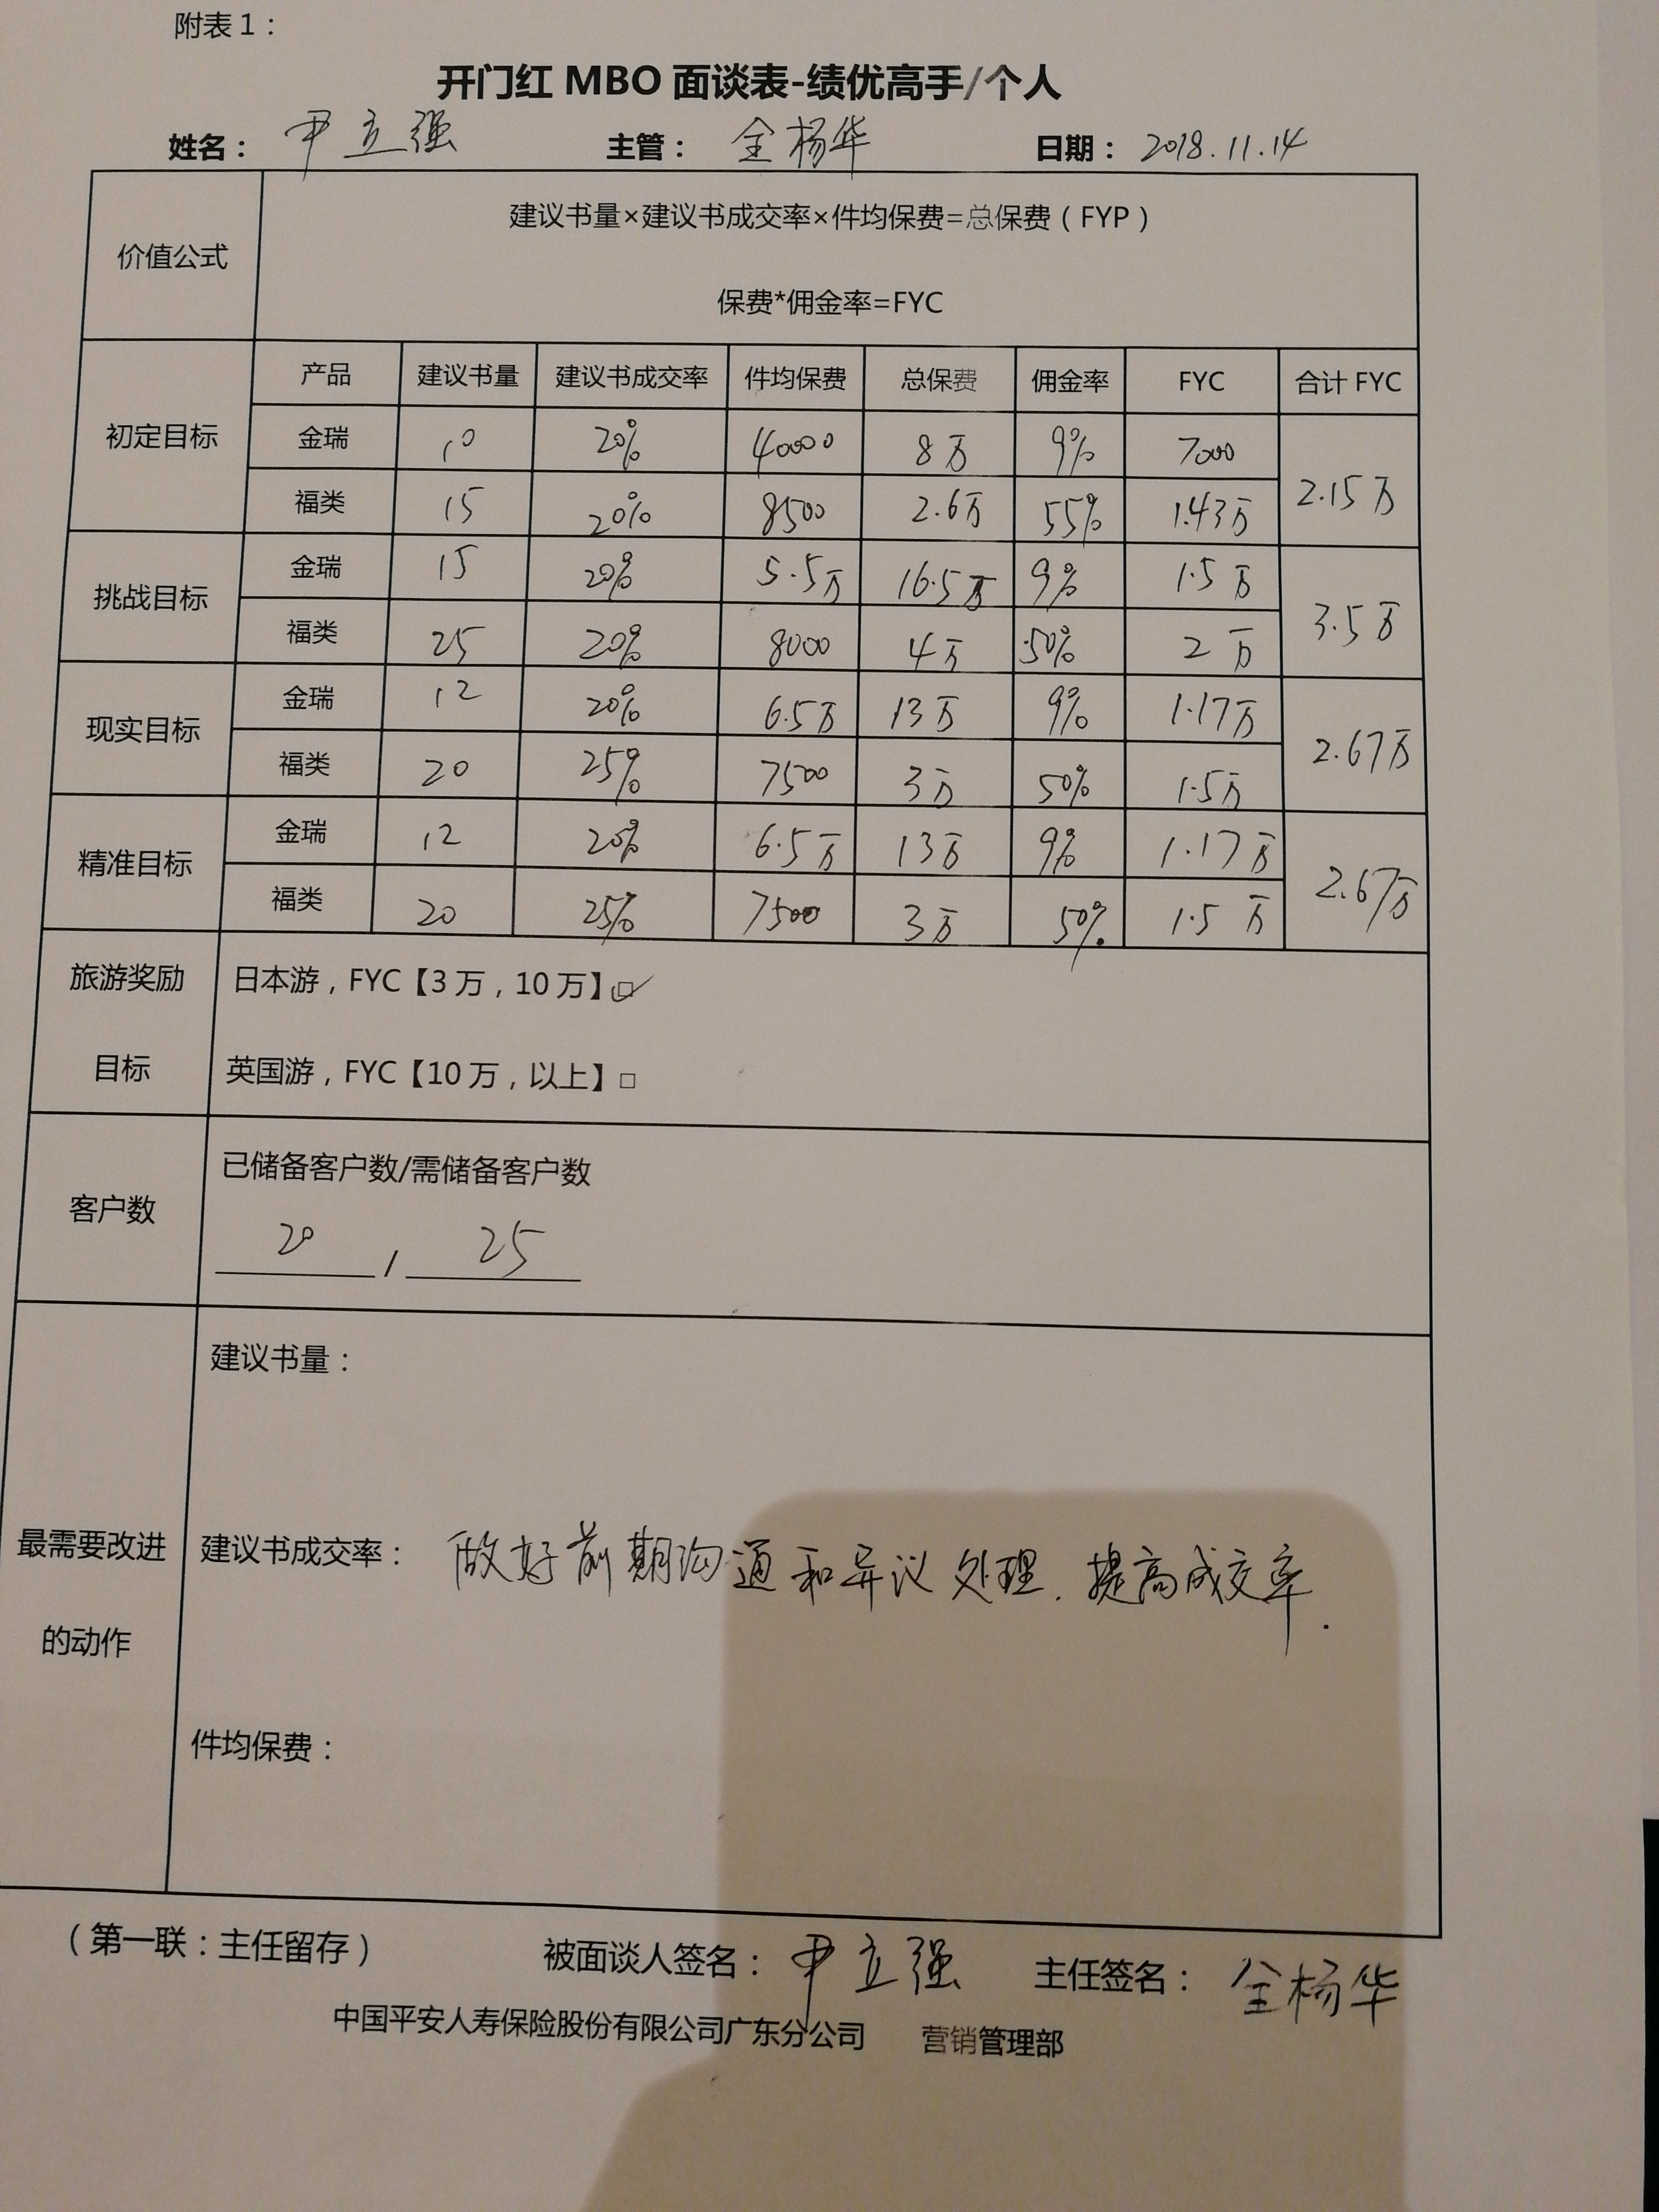 附表1：
开门红 MBO 面谈表-绩优高手/个人
姓名： 尹立强 主管： 全杨华 日期： 2018.11.14
价值公式
建议书量×建议书成交率×件均保费=总保费（FYP）
保费*佣金率=FYC
产品 建议书量 建议书成交率 件均保费 总保费 佣金率 FYC 合计 FYC
初定目标
金瑞 10 20% 40000 8万 9% 7000
福类 15 20% 8500 2.6万 55% 1.43万
2.15万
挑战目标
金瑞 15 20% 5.5万 16.5万 9% 1.5万
福类 25 20% 8000 4万 50% 2万
3.5万
现实目标
金瑞 12 20% 6.5万 13万 9% 1.17万
福类 20 25% 7500 3万 50% 1.5万
2.67万
精准目标
金瑞 12 20% 6.5万 13万 9% 1.17万
福类 20 25% 7500 3万 50% 1.5万
2.67万
旅游奖励
目标
日本游，FYC【3万，10万】☑
英国游，FYC【10万，以上】□
客户数
已储备客户数/需储备客户数
20 / 25
最需要改进
的动作
建议书量：
建议书成交率： 做好前期沟通和异议处理．提高成交率．
件均保费：
（第一联：主任留存） 被面谈人签名： 尹立强 主任签名： 全杨华
中国平安人寿保险股份有限公司广东分公司 营销管理部